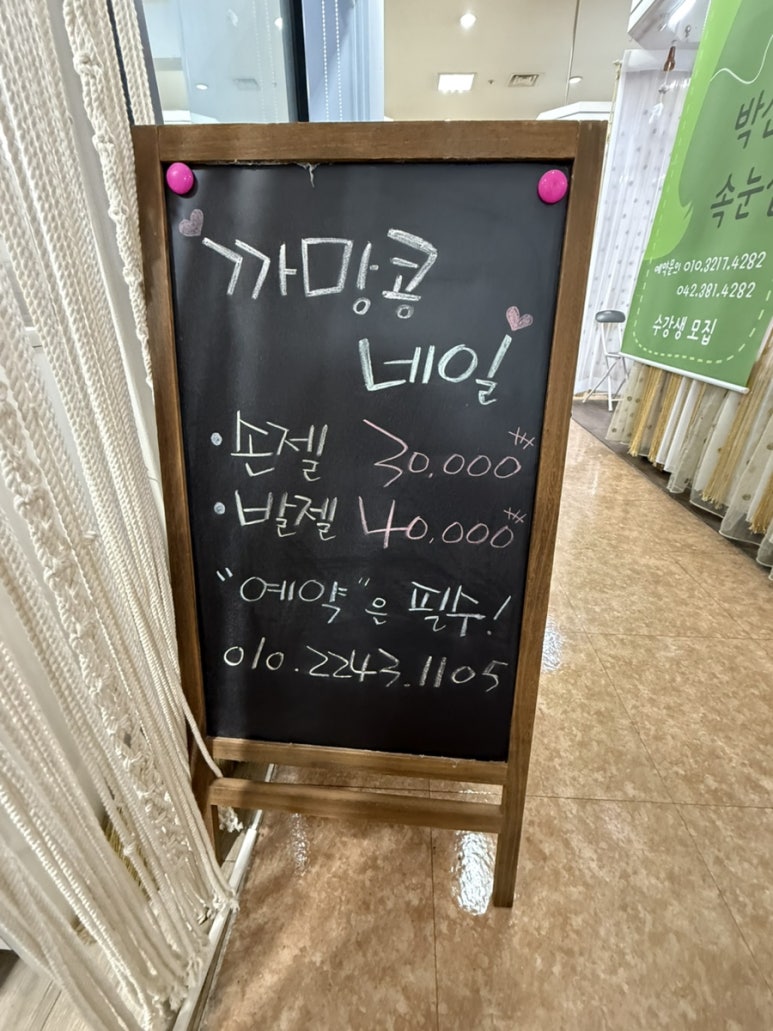 까망콩
네일
• 손젤 30,000
• 발젤 40,000
"예약"은 필수!
010.2243.1105
예약문의 010.3217.4282
042.381.4282
수강생 모집